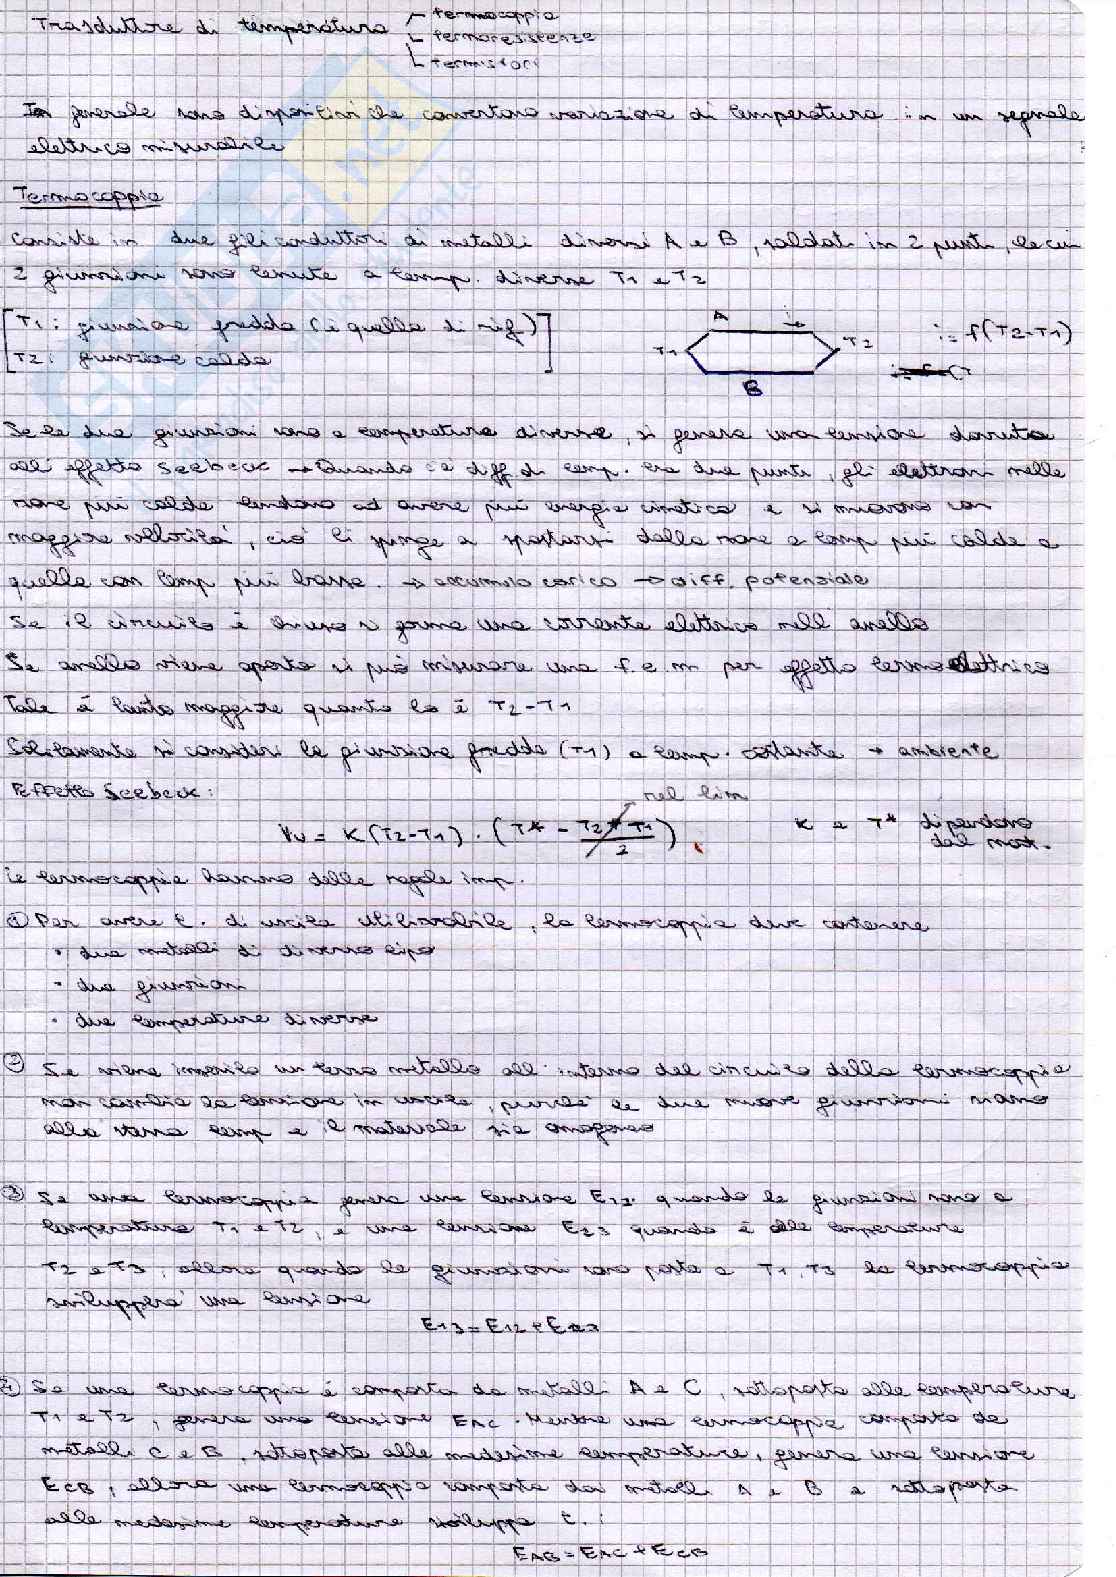 Trasduttore di temperatura
termocoppia
termoresistenze
termistori
In generale sono dispositivi che convertono variazione di temperatura in un segnale
elettrico misurabile
Termocoppia
Consiste in due fili conduttori di metalli diversi A e B, saldati in 2 punti, le cui
2 giunzioni sono tenute a temp. diverse T1 e T2
T1: giunzione fredda (è quella di rif)
T2: giunzione calda
A i T1 T2 B
i = f(T2-T1)
Se le due giunzioni sono a temperatura diversa, si genera una tensione dovuta
all'effetto Seebeck → Quando c'è diff. di temp. tra due punti, gli elettroni nelle
zone più calde tendono ad avere più energia cinetica e si muovono con
maggiore velocità, ciò li spinge a spostarsi dalla zone a temp più calda a
quella con temp più bassa. → accumulo carica → diff. potenziale
Se il circuito è chiuso si forma una corrente elettrica nell'anello
Se anello viene aperto si può misurare una f.e.m per effetto termoelettrico
Tale è tanto maggiore quanto lo è T2-T1
Solitamente si consideri la giunzione fredda (T1) a temp. costante → ambiente
Effetto Seebeck:
nel lim
Vu = K(T2-T1) · (T* - T2+T1/2)
K e T* dipendono
dal mat.
Le termocoppie hanno delle regole imp.
① Per avere t. di uscita utilizzabile, la termocoppia deve contenere
· due metalli di diverso tipo
- due giunzioni
· due temperature diverse
② Se viene inserito un terzo metallo all'interno del circuito della termocoppia
non cambia la tensione in uscita, purché le due nuove giunzioni siano
alla stessa temp e il materiale sia omogeneo
③ Se una termocoppia genera una tensione E12 quando le giunzioni sono a
temperatura T1 e T2, e una tensione E23 quando è alle temperature
T2 e T3, allora quando le giunzioni sono poste a T1, T3 la termocoppia
svilupperà una tensione
E13=E12+E23
④ Se una termocoppia è composta da metalli A e C, sottoposta alle temperature
T1 e T2, genera una tensione EAC. Mentre una termocoppia composta da
metalli C e B, sottoposta alle medesime temperature, genera una tensione
ECB, allora una termocoppia composta dai metalli A e B e sottoposta
alle medesime temperature sviluppa t.:
EAB=EAC+ECB